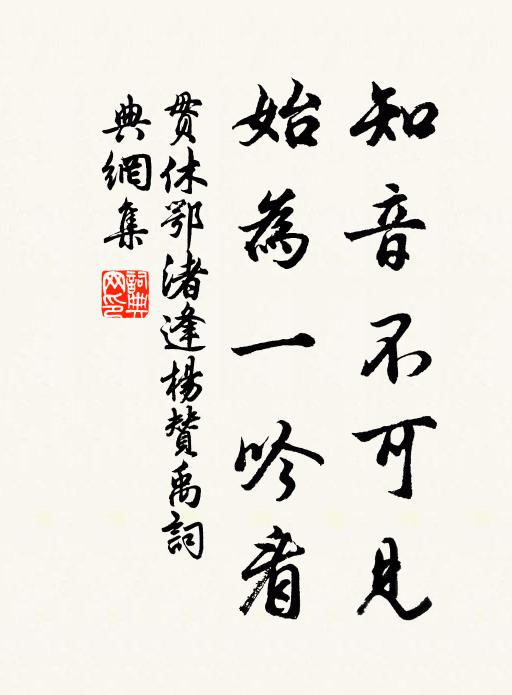 知音不可見
始為一吟看
貫休鄂渚逢楊贊禹詞
典網集
詞典網印